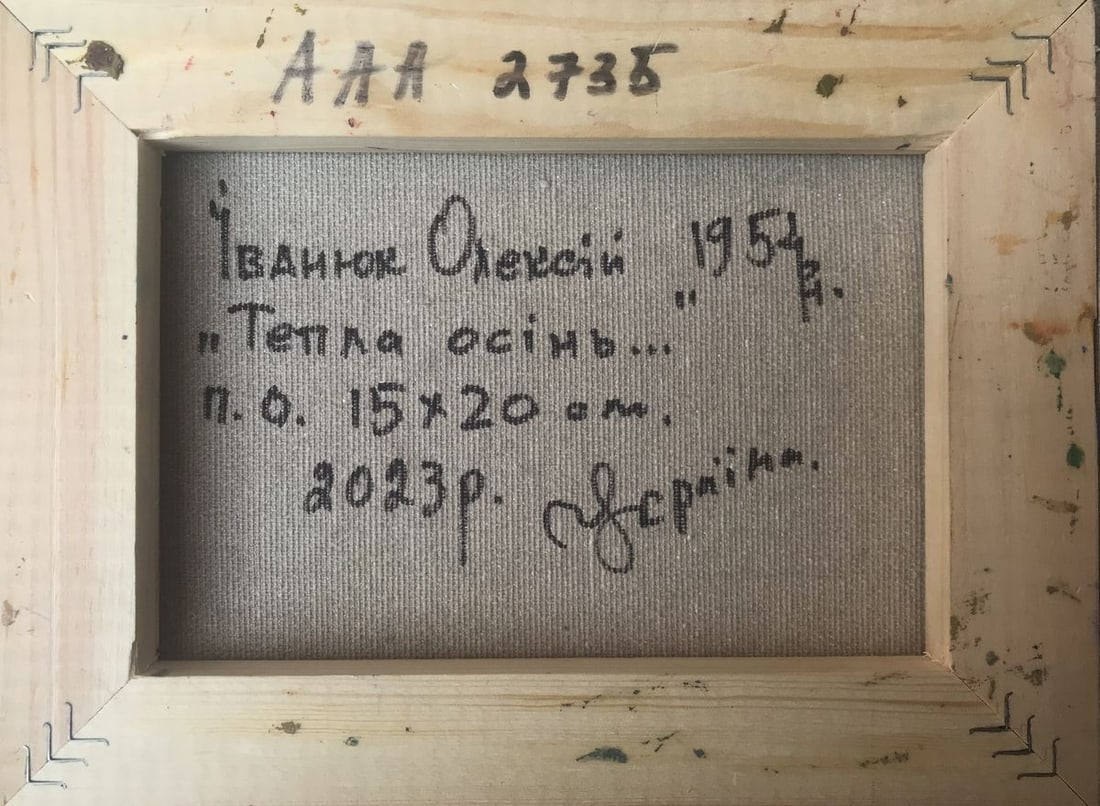 ААА 2735
Іванюк Олексій 1954 р.н.
„Тепла осінь..."
п.о. 15x20 см.
2023р. Україна.